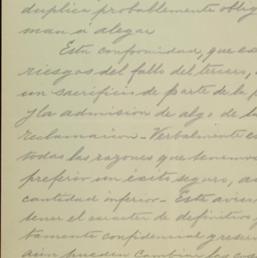 duplica probablemente oblig
man á alegar
Esta conformidad, que es
riesgos del fallo del tercero,
un sacrificio de parte de la p
y la admisión de algo de la
reclamación - Verbalmente e
todas las razones que tenemos
preferir un éxito seguro, au
cantidad inferior - Este aviso
tener el carácter de definitivo y
tamente confidencial y reserv
aún pueden cambiar las cos